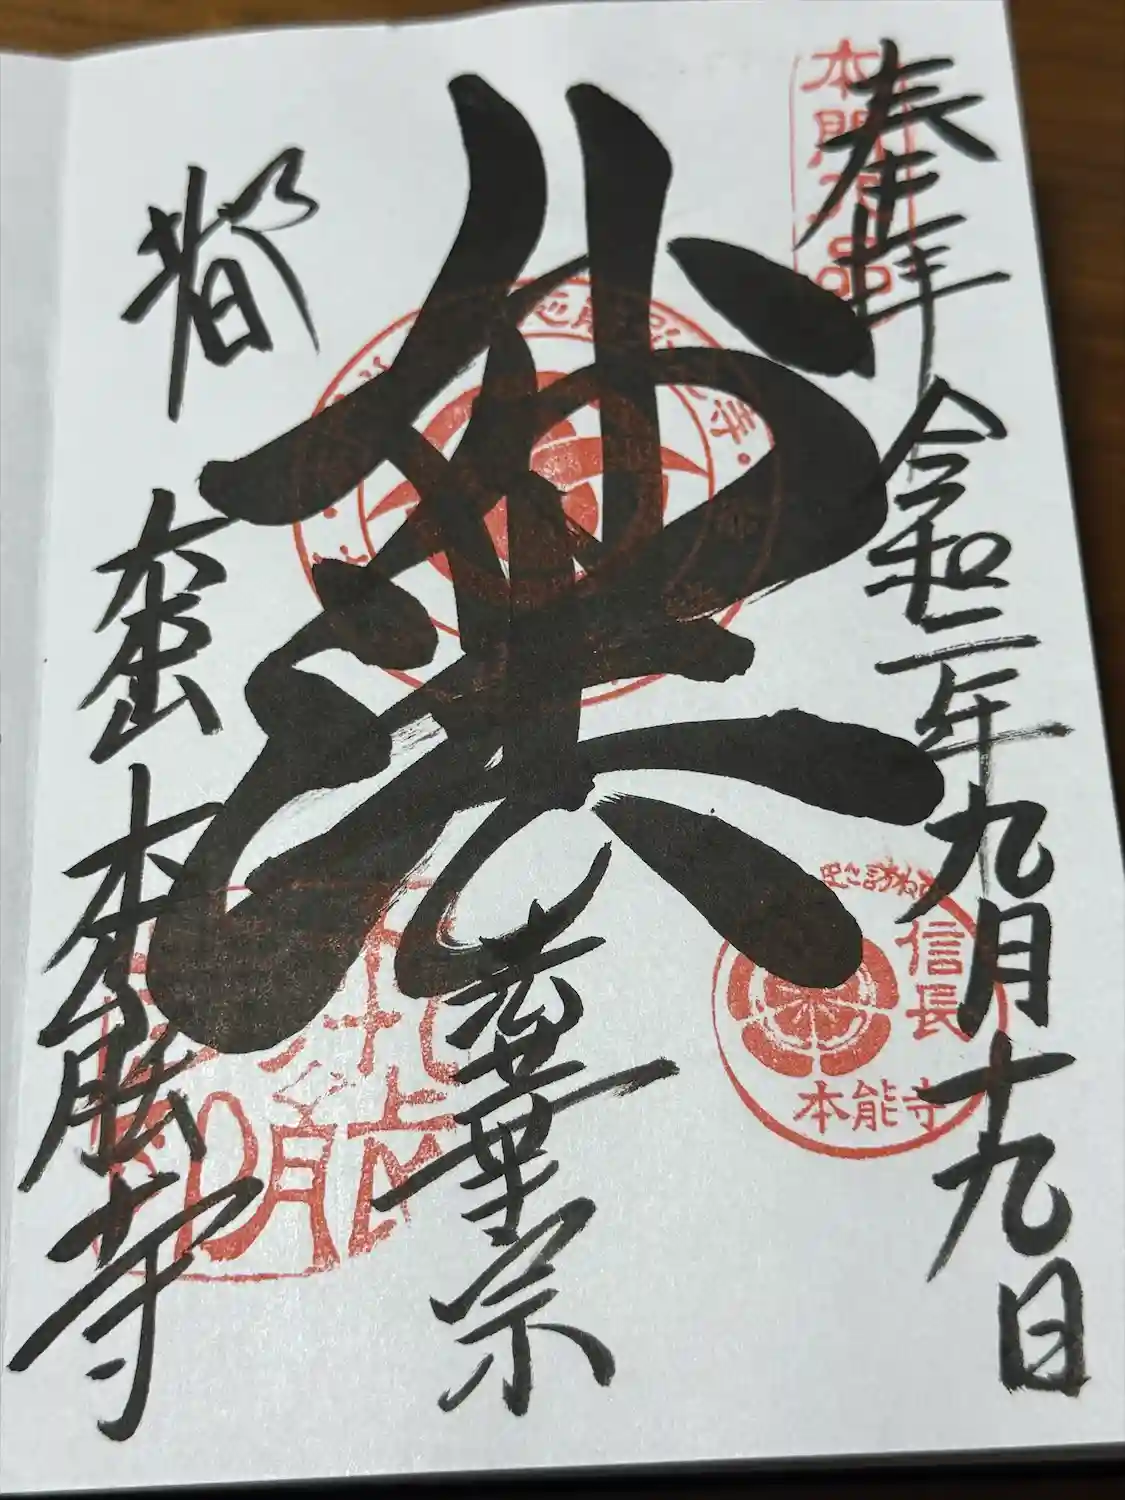 奉拝 令和二年九月十九日
本門八品
信長
本能寺
妙法
法華宗
都
大本山 本能寺